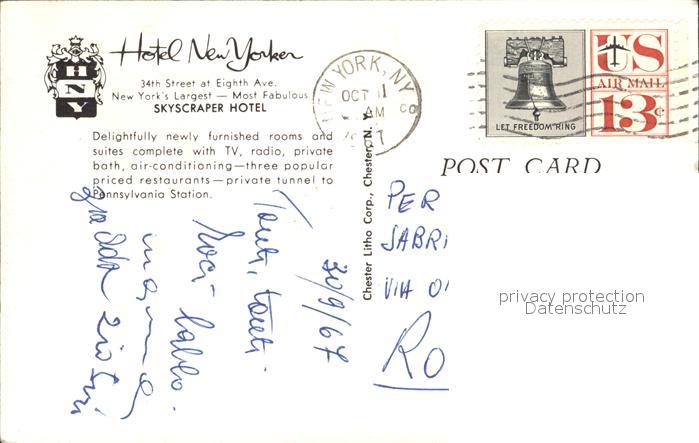 Hotel New Yorker
34th Street at Eighth Ave.
New York's Largest — Most Fabulous
SKYSCRAPER HOTEL
Delightfully newly furnished rooms and
suites complete with TV, radio, private
bath, air-conditioning — three popular
priced restaurants — private tunnel to
Pennsylvania Station.
HNY
NEW YORK, N.Y.
OCT
AM
US
AIR MAIL
13c
LET FREEDOM RING
POST CARD
Chester Litho Corp., Chester, N. Y.
30/9/67
Tanti, tanti
PER
SABRI
VIA
RO
privacy protection
Datenschutz